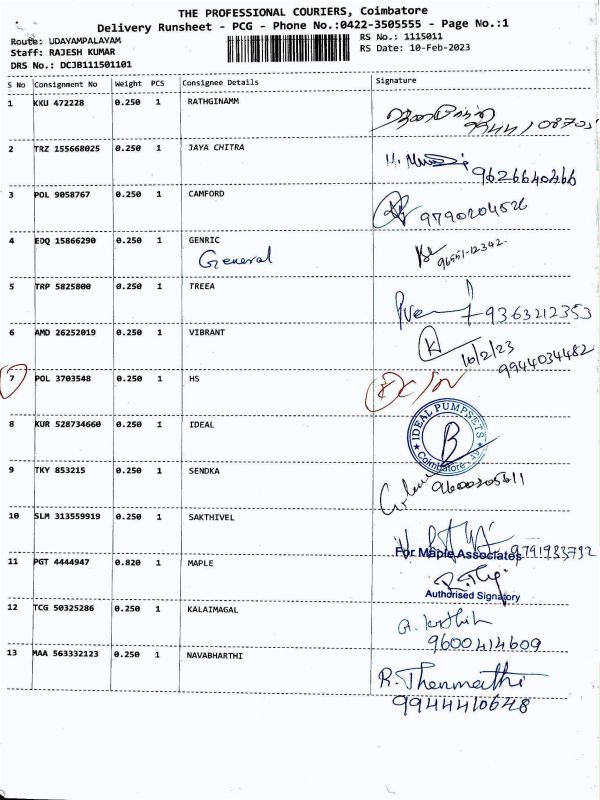 THE PROFESSIONAL COURIERS, Coimbatore
Delivery Runsheet - PCG - Phone No.:0422-3505555 - Page No.:1
Route: UDAYAMPALAYAM
RS No.: 1115011
Staff: RAJESH KUMAR
RS Date: 10-Feb-2023
DRS No.: DCJB111501101
S No Consignment No Weight PCS Consignee Details Signature
1 KKU 472228 0.250 1 RATHGINAMM
2 TRZ 155668025 0.250 1 JAYA CHITRA
9626640466
3 POL 9058767 0.250 1 CAMFORD
9790204526
4 EDQ 15866290 0.250 1 GENRIC
General
96551-12342
5 TRP 5825800 0.250 1 TREEA
9363212353
6 AMD 26252019 0.250 1 VIBRANT
K 10/2/23
9944034482
7 POL 3703548 0.250 1 HS
8 KUR 528734660 0.250 1 IDEAL
IDEAL PUMPSETS
B
Coimbatore
9 TKY 853215 0.250 1 SENDKA
9600205611
10 SLM 313559919 0.250 1 SAKTHIVEL
9791933732
11 PGT 4444947 0.820 1 MAPLE
For Maple Associates
Authorised Signatory
12 TCG 50325286 0.250 1 KALAIMAGAL
9600414609
13 MAA 563332123 0.250 1 NAVABHARTHI
R. Thenmathi
9944410648